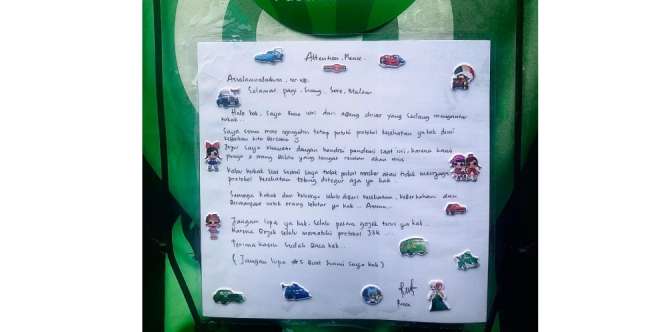 Attention Please.
Assalamualaikum. wr. wb.
Selamat, pagi, siang, sore, Malam
Halo kak, saya Rina istri dari abang driver yang sedang mengantar kakak.
Saya cuma mau ngingatin tetap patuhi protokol kesehatan ya kak demi kebaikan kita bersama :)
Jujur saya khawatir dengan kondisi pandemi saat ini, karena kami punya 2 orang balita yang sangat rentan akan virus
Kalau kakak liat suami saya tidak pakai masker atau tidak menjaga protokol kesehatan tolong ditegur aja ya kak
Semoga kakak dan keluarga selalu diberi kesehatan, keberkahan dan bermanfaat untuk orang sekitar ya kak.. Aamiin..
Jangan lupa ya kak, selalu pakai gojek terus ya kak..
Karena Gojek selalu mematuhi protokol J3K...
Terima kasih sudah baca kak..
( Jangan lupa #5 Buat Suami saya kak )
Rina